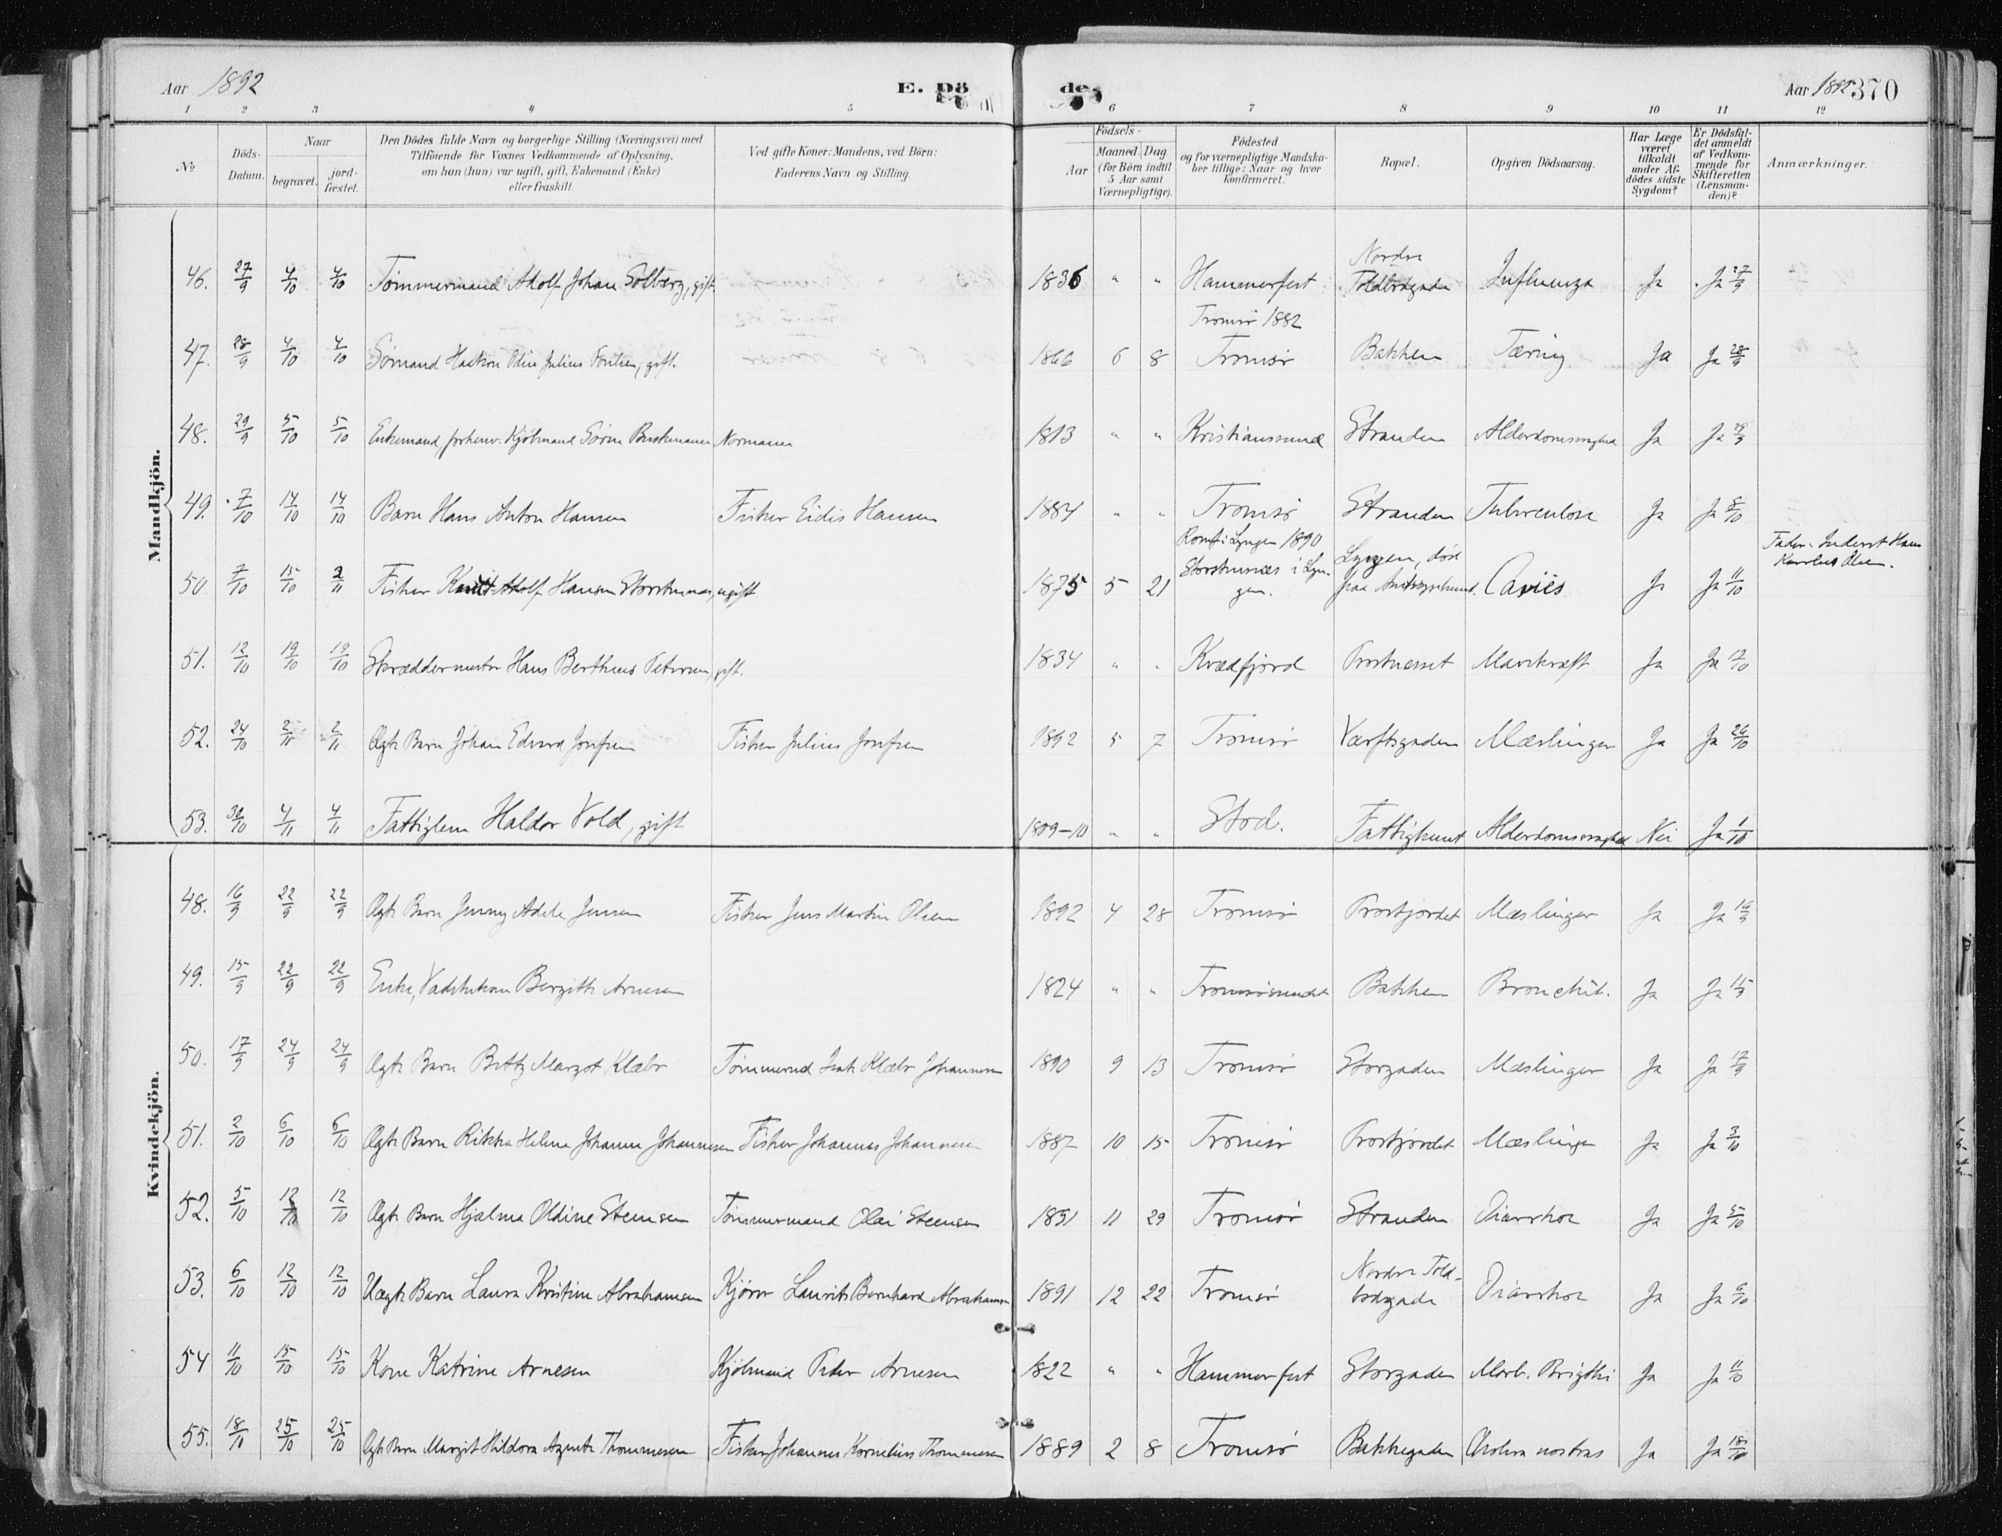 Aar 1892 E. Dö de. Aar 1892 370
1 2 3 4 5 6 7 8 9 10 11 12
No. Döds-Datum. Naar begravet. jord-fæstet. Den Dödes fulde Navn og borgerlige Stilling (Næringsvei) med Tilföiende for Voxnes Vedkommende af Oplysning, om han (hun) var ugift, gift, Enkemand (Enke) eller fraskilt. Ved gifte Koner: Mandens, ved Börn: Faderens Navn og Stilling. Födsels- Aar Maaned. Dag (for Börn indtil 5 Aar samt Værnepligtige). Födested og for værnepligtige Mandskaber tillige: Naar og hvor konfirmeret. Bopæl. Opgiven Dödsaarsag. Har Læge været tilkaldt under Afdödes sidste Sygdom? Er Dödsfaldet anmeldt af Vedkommende for Skifteretten (Lensmanden)? Anmærkninger.
Mandkjön.
46. 27/9 4/10 4/10 Tømmermand Adolf Johan Solberg, gift 1836 " " Hammerfest Nordre Toldbodgade Influenza Ja Ja 27/9
47. 28/9 4/10 4/10 Sømand Haakon Odin Julius, gift. 1866 6 8 Tromsø 1882 Tromsø Bakken Tæring Ja Ja 28/9
48. 29/9 5/10 5/10 Enkemand, forhenv. Kjøbmand Sørn Normann 1813 " " Kristianssund Stranden Alderdomssvaghed Ja Ja 29/9
49. 7/10 14/10 14/10 Barn Hans Anton Hansen Fisker Eidis Hansen 1884 " " Tromsø Stranden Tuberculose Ja Ja 8/10
50. 7/10 15/10 2/11 Fisker Adolf Hansen Storstennæs, ugift 1875 5 21 Konf. i Lyngen 1890 Storstennæs i Lyngen. Lyngen, død paa Caries Ja Ja 11/10 Fader: Hans Olsen.
51. 12/10 19/10 19/10 Skræddermester Hans Bertheus Petersen, gift. 1834 " " Kvædfjord Prestnesset Mavekræft Ja Ja 12/10
52. 24/10 2/11 2/11 Ægte Barn Johan Edvard Josefsen Fisker Julius Josefsen 1892 5 7 Tromsø Værftsgaden Mæslinger Ja Ja 26/10
53. 30/10 4/11 4/11 Fattiglem Haldor Vold, gift 1809-10 " " Stod. Fattighuset Alderdomssvaghed Nei Ja 1/10
Kvindekjön.
48. 16/9 22/9 22/9 Ægte Barn Jenny Adele Jensen Fisker Jens Martin Olsen 1892 4 28 Tromsø Prestjordet Mæslinger Ja Ja 16/9
49. 15/9 22/9 22/9 Enke, Vadskekone Bergitte Arnesen 1824 " " Tromsøsundet Bakken Bronchit. Ja Ja 15/9
50. 17/9 24/9 24/9 Ægte Barn Betty Margot Klæbo Tømmermd Isak Klæbo Johannesen 1890 9 13 Tromsø Storgaden Mæslinger Ja Ja 17/9
51. 2/10 6/10 6/10 Ægte Barn Rikka Helene Johanne Johannesen Fisker Johannes Johannesen 1887 10 15 Tromsø Prostjordet Mæslinger Ja Ja 3/10
52. 5/10 12/10 12/10 Ægte Barn Hjalma Oldine Steensen Tømmermand Olai Steensen 1891 11 29 Tromsø Stranden Diarrhoe Ja Ja 5/10
53. 6/10 12/10 12/10 Uægte Barn Laura Kristine Abrahamsen Kjører Laurits Bernhard Abrahamsen 1891 12 22 Tromsø Nordre Toldbodgade Diarrhoe Ja Ja 6/10
54 11/10 15/10 15/10 Kone Katrine Arnesen Kjøbmand Peder Arnesen 1822 " " Hammerfest Storgaden Morb. Brigthi Ja Ja 11/10
55. 18/10 25/10 25/10 Ægte Barn Margit Hildora Agnete Thommesen Fisker Johannes Kornelius Thommesen 1889 2 8 Tromsø Bakkegaden Cholera nostras Ja Ja 18/10